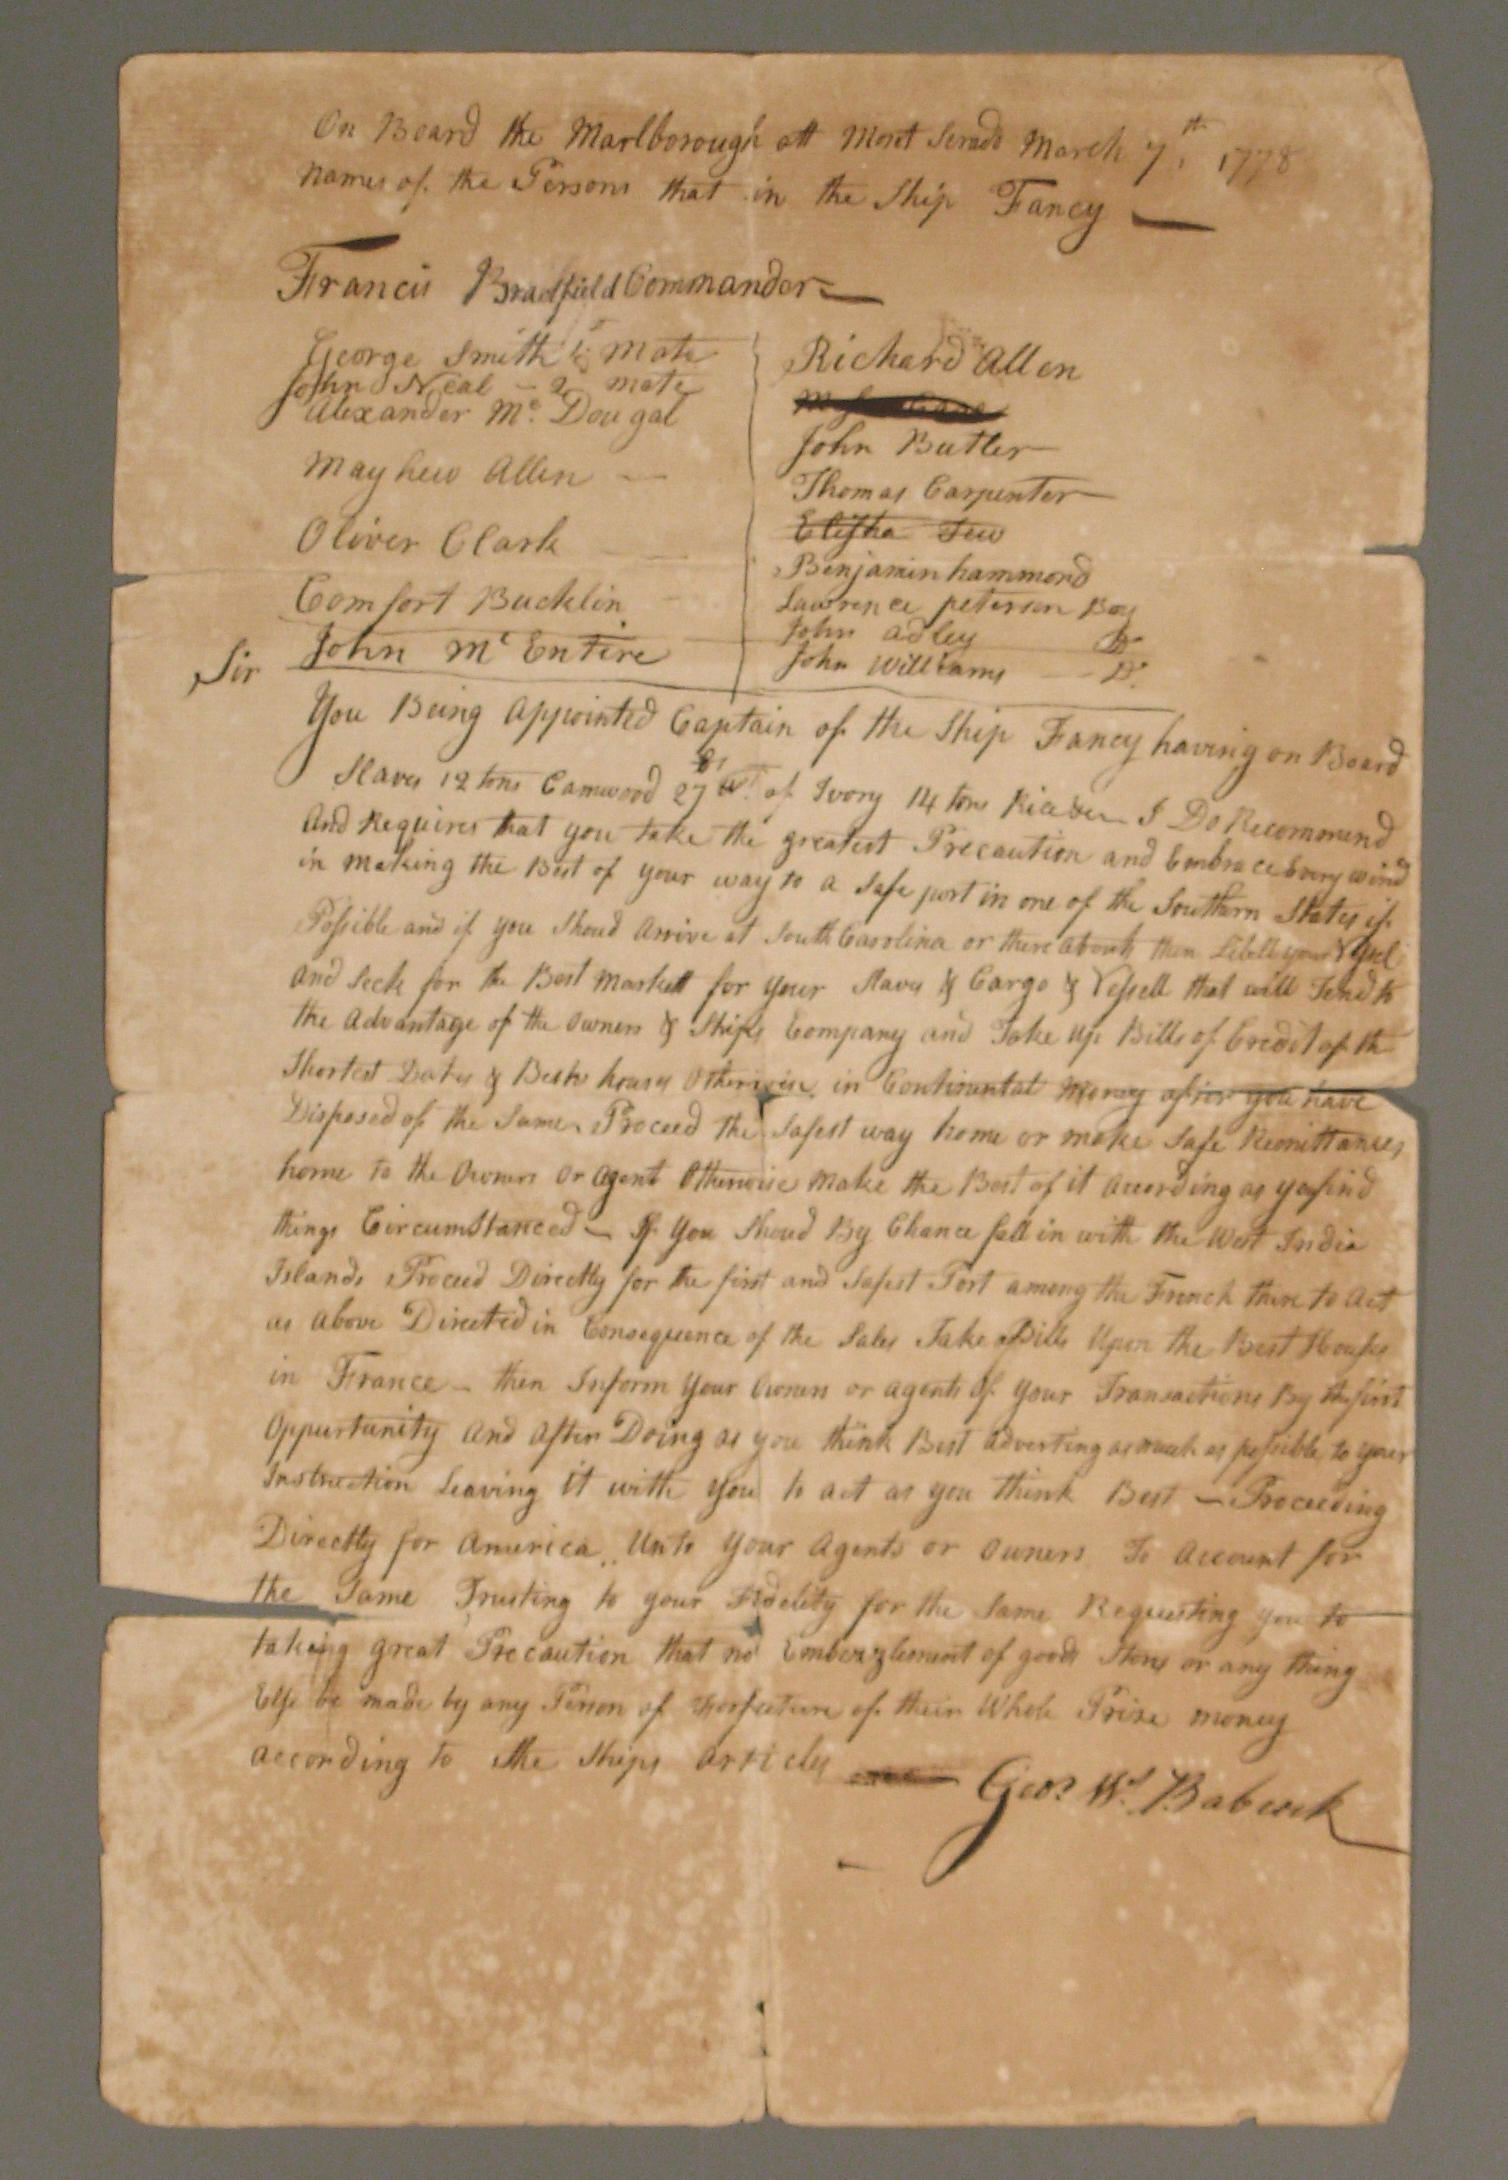 On Board the Marlborough att Mont Serado March 7th, 1778
Names of the Persons that in the Ship Fancy
Francis Bradfield Commander
George Smith 1st Mate
John Neal - 2 mate
Alexander Mc Dougal
Mayhew Allen
Oliver Clark
Comfort Bucklin
John Mc Entire
Richard Allen
John Butler
Thomas Carpenter
Elisha Tew
Benjamin hammond
Lawrence peterson Boy
John Adley Do
John Williams Do.
Sir
You Being Appointed Captain of the Ship Fancy having on Board
Slaves 12 tons Camwood 27 Ct. of Ivory 14 tons Rice &c I Do Recommend
And Requires that you take the greatest Precaution and Embrace Every wind
in making the Best of your way to a Safe port in one of the Southern States if
Possible and if you Shoud Arrive at South Carolina or there abouts then Libell your Vessel
and Seek for the Best Markett for your Slaves & Cargo & Vessell that will Tend to
the Advantage of the Owners & Ships Company and Take up Bills of Credit of the
Shortest Dates & Best houses Otherwise in Continental Money after you have
Disposed of the Same Proceed the Safest way home or make Safe Remittances
home to the Owners or Agent Otherwise Make the Best of it According as you find
things CircumStanced If You Shoud By Chance fall in with the West India
Islands Proceed Directly for the first and Safest Port among the French there to Act
as above Directed in Consequence of the Sales Take Bills Upon the Best Houses
in France - then Inform Your Owners or agents of your Transactions By the first
Oppurtunity And After Doing as you think Best adverting as much as possible to your
Instruction Leaving it with you to act as you think Best - Proceeding
Directly for America Unto Your Agents or Owners To Account for
the Same Trusting to your Fidelity for the Same Requesting you to
taking great Precaution that no Embezzlement of goods Stores or any thing
Else be made by any Person of Forfeiture of their Whole Prize money
according to the Ships Articles
Geo. Wt. Babcock